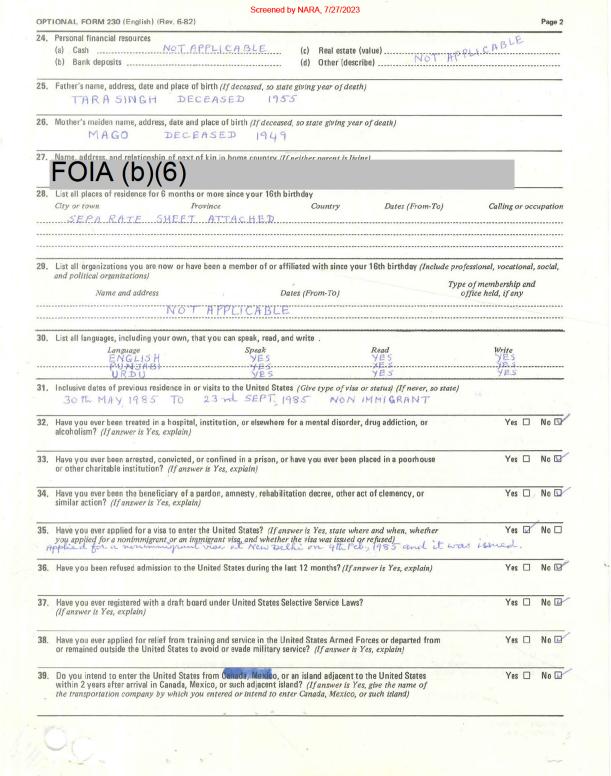 Screened by NARA, 7/27/2023
OPTIONAL FORM 230 (English) (Rev. 6-82) Page 2
24. Personal financial resources
(a) Cash NOT APPLICABLE (c) Real estate (value)
(b) Bank deposits (d) Other (describe) NOT APPLICABLE
25. Father's name, address, date and place of birth (If deceased, so state giving year of death)
TARA SINGH DECEASED 1955
26. Mother's maiden name, address, date and place of birth (If deceased, so state giving year of death)
MAGO DECEASED 1949
27. Name, address, and relationship of next of kin in home country (If neither parent is living)
FOIA (b)(6)
28. List all places of residence for 6 months or more since your 16th birthday
City or town Province Country Dates (From-To) Calling or occupation
SEPARATE SHEET ATTACHED
29. List all organizations you are now or have been a member of or affiliated with since your 16th birthday (Include professional, vocational, social,
and political organizations)
Type of membership and
Name and address Dates (From-To) office held, if any
NOT APPLICABLE
30. List all languages, including your own, that you can speak, read, and write .
Language Speak Read Write
ENGLISH YES YES YES
PUNJABI YES YES YES
URDU YES YES YES
31. Inclusive dates of previous residence in or visits to the United States (Give type of visa or status) (If never, so state)
30th MAY 1985 TO 23rd SEPT. 1985 NON IMMIGRANT
32. Have you ever been treated in a hospital, institution, or elsewhere for a mental disorder, drug addiction, or Yes No
alcoholism? (If answer is Yes, explain)
33. Have you ever been arrested, convicted, or confined in a prison, or have you ever been placed in a poorhouse Yes No
or other charitable institution? (If answer is Yes, explain)
34. Have you ever been the beneficiary of a pardon, amnesty, rehabilitation decree, other act of clemency, or Yes No
similar action? (If answer is Yes, explain)
35. Have you ever applied for a visa to enter the United States? (If answer is Yes, state where and when, whether Yes No
you applied for a nonimmigrant or an immigrant visa, and whether the visa was issued or refused)
Applied for a nonimmigrant visa at New Delhi on 4th Feb, 1985 and it was issued.
36. Have you been refused admission to the United States during the last 12 months? (If answer is Yes, explain) Yes No
37. Have you ever registered with a draft board under United States Selective Service Laws? Yes No
(If answer is Yes, explain)
38. Have you ever applied for relief from training and service in the United States Armed Forces or departed from Yes No
or remained outside the United States to avoid or evade military service? (If answer is Yes, explain)
39. Do you intend to enter the United States from Canada, Mexico, or an island adjacent to the United States Yes No
within 2 years after arrival in Canada, Mexico, or such adjacent island? (If answer is Yes, give the name of
the transportation company by which you entered or intend to enter Canada, Mexico, or such island)